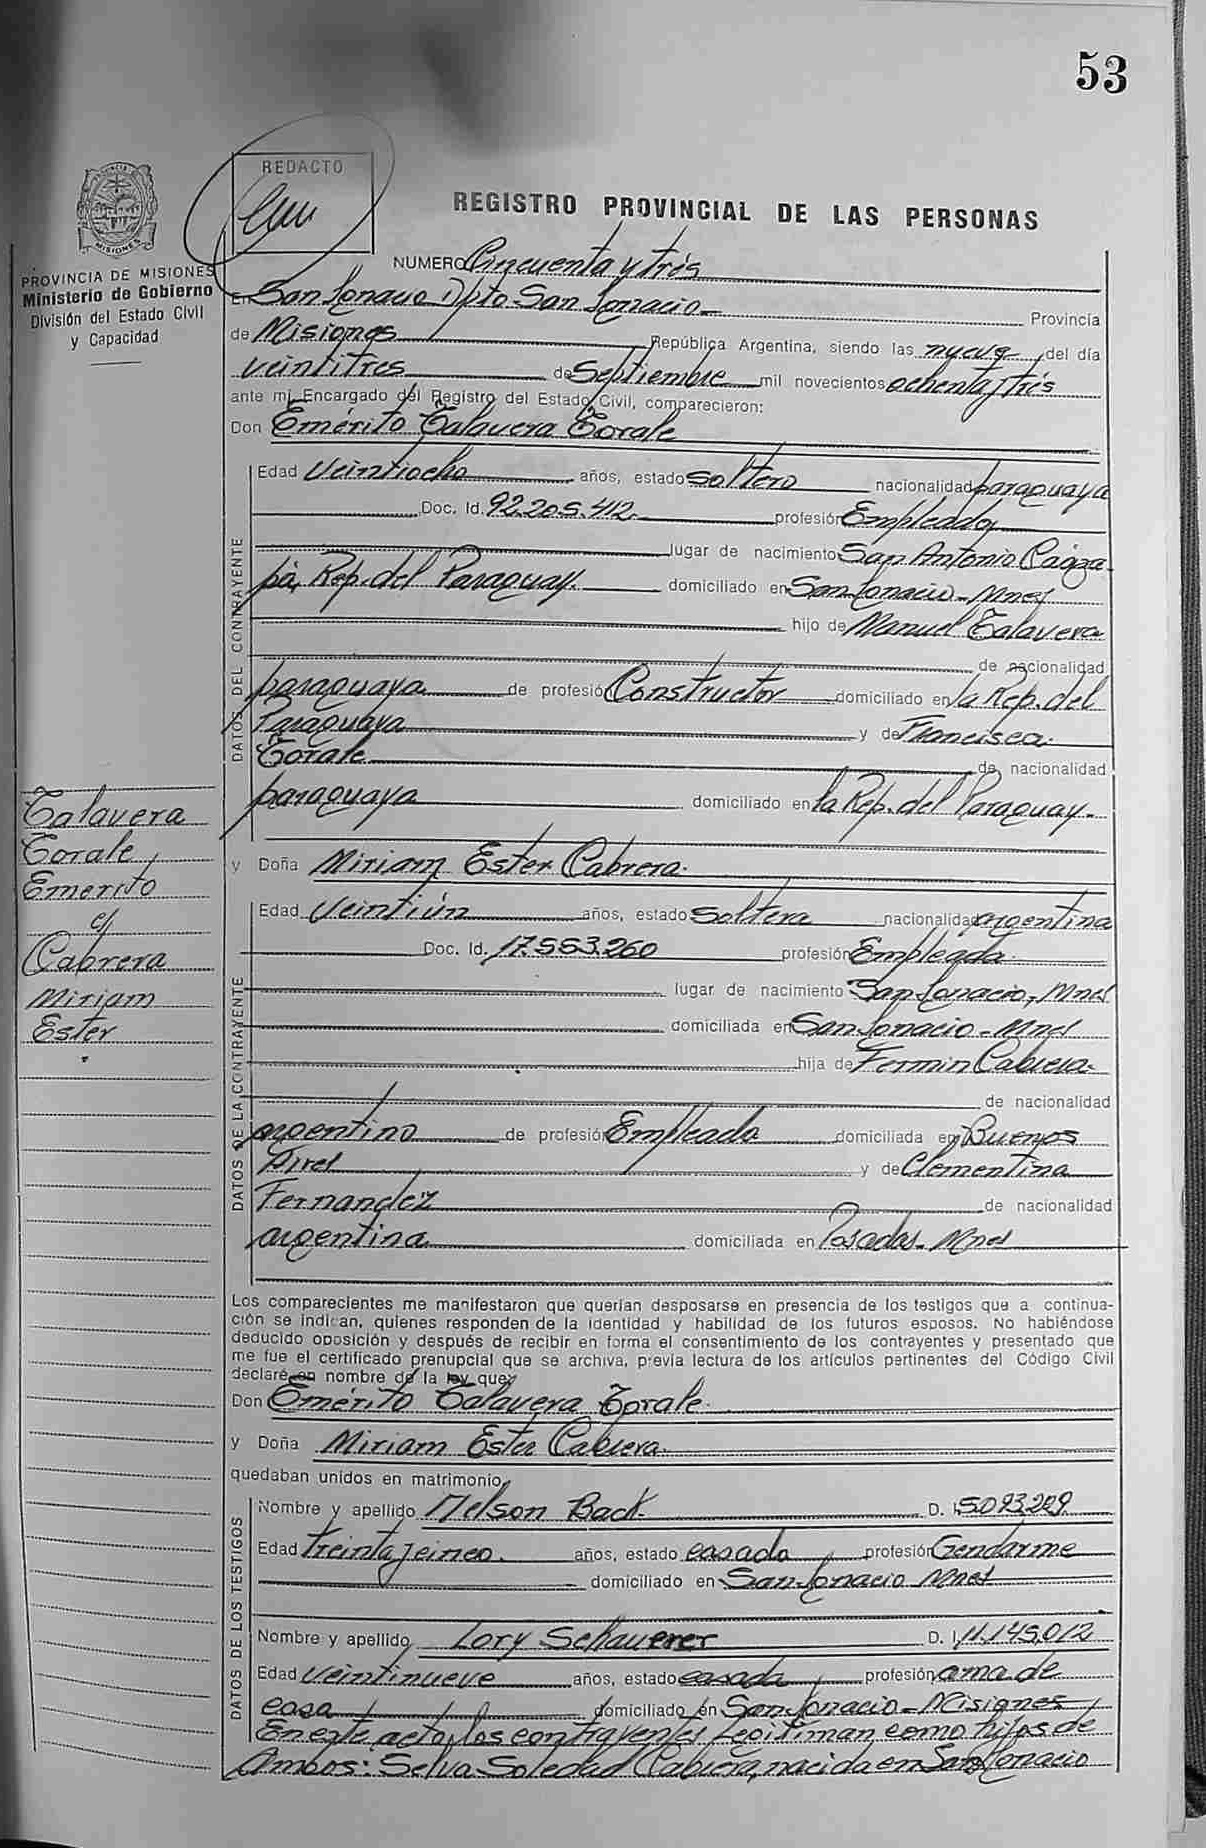 53
REDACTO
REGISTRO PROVINCIAL DE LAS PERSONAS
PROVINCIA DE MISIONES
Ministerio de Gobierno
División del Estado Civil
y Capacidad
NUMERO Cincuenta y trés
En San Ignacio Dpto San Ignacio Provincia
de Misiones República Argentina, siendo las nueve del día
veintitres de Septiembre mil novecientos ochenta y trés
ante mi, Encargado del Registro del Estado Civil, comparecieron:
Don Emérito Talavera Torale
DATOS DEL CONTRAYENTE
Edad Veintiocho años, estado soltero nacionalidad paraguaya
Doc. Id. 92.205.412 profesión Empleado
lugar de nacimiento San Antonio Caaza-
pá, Rep. del Paraguay. domiciliado en San Ignacio - Mnes
hijo de Manuel Talavera
de nacionalidad
paraguaya de profesión Constructor domiciliado en la Rep. del
Paraguaya y de Francisca
Torale de nacionalidad
paraguaya domiciliado en la Rep. del Paraguay.
Talavera
Torale
Emerito
c/
Cabrera
Miriam
Ester
y Doña Miriam Ester Cabrera.
DATOS DE LA CONTRAYENTE
Edad Veintiún años, estado Soltera nacionalidad argentina
Doc. Id. 17.553.260 profesión Empleada
lugar de nacimiento San Ignacio, Mnes
domiciliada en San Ignacio - Mnes
hija de Fermin Cabrera.
de nacionalidad
argentino de profesión Empleado domiciliada en Buenos
Aires y de Clementina
Fernandez de nacionalidad
argentina domiciliada en Posadas. Mnes
Los comparecientes me manifestaron que querían desposarse en presencia de los testigos que a continua-
ción se indican, quienes responden de la identidad y habilidad de los futuros esposos. No habiéndose
deducido oposición y después de recibir en forma el consentimiento de los contrayentes y presentado que
me fue el certificado prenupcial que se archiva, previa lectura de los artículos pertinentes del Código Civil
declaré en nombre de la ley que:
Don Emérito Talavera Torale.
y Doña Miriam Ester Cabrera.
quedaban unidos en matrimonio
DATOS DE LOS TESTIGOS
Nombre y apellido Nelson Back D. I. 5.093.209
Edad treinta y cinco. años, estado casado profesión Gendarme
domiciliado en San Ignacio Mnes
Nombre y apellido Lory Schauerer D. I. 11.145.012
Edad Veintinueve años, estado casada profesión ama de
casa domiciliado en San Ignacio - Misiones
En este acto, los contrayentes legitiman como hijos de
Ambos: Selva Soledad Cabrera, nacida en San Ignacio